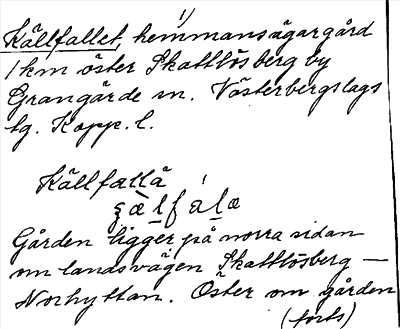 1)
Källfallet, hemmansägargård
1 km öster Skattlösberg by
Grangärde sn. Västerbergslags
tg. Kopp. l.
Källfallä
Gården ligger på norra sidan
om landsvägen Skattlösberg —
Norhyttan. Öster om gården
(forts)